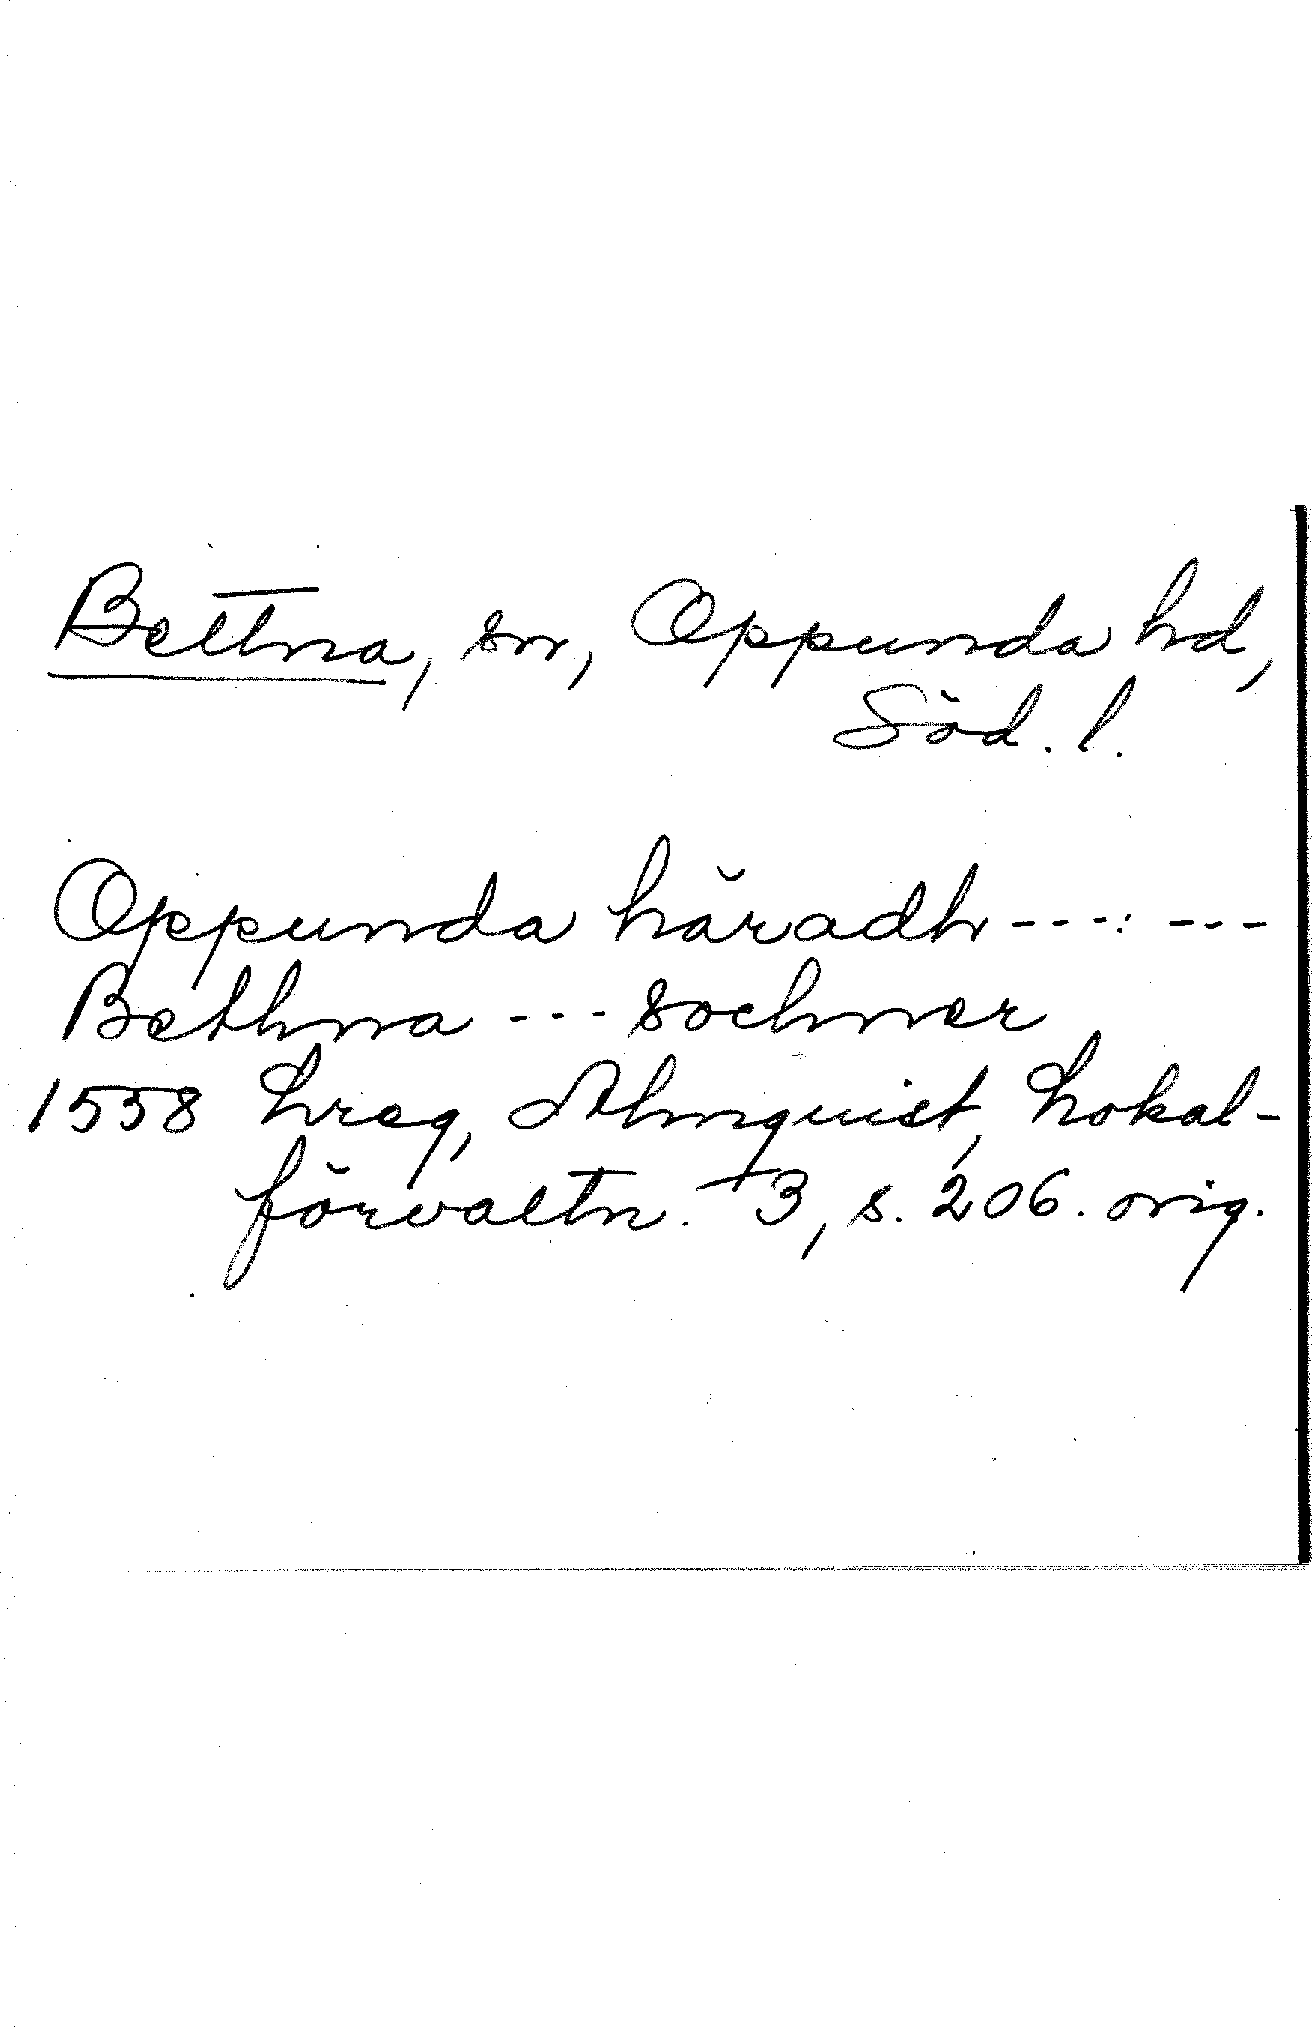 Bettna, sn, Oppunda hd,
Söd. l.
Oppunda häradh ---: ---
Bethna --- sochner
1558 Lreg, Almquist, Lokal-
förvaltn. 3, s. 206. orig.